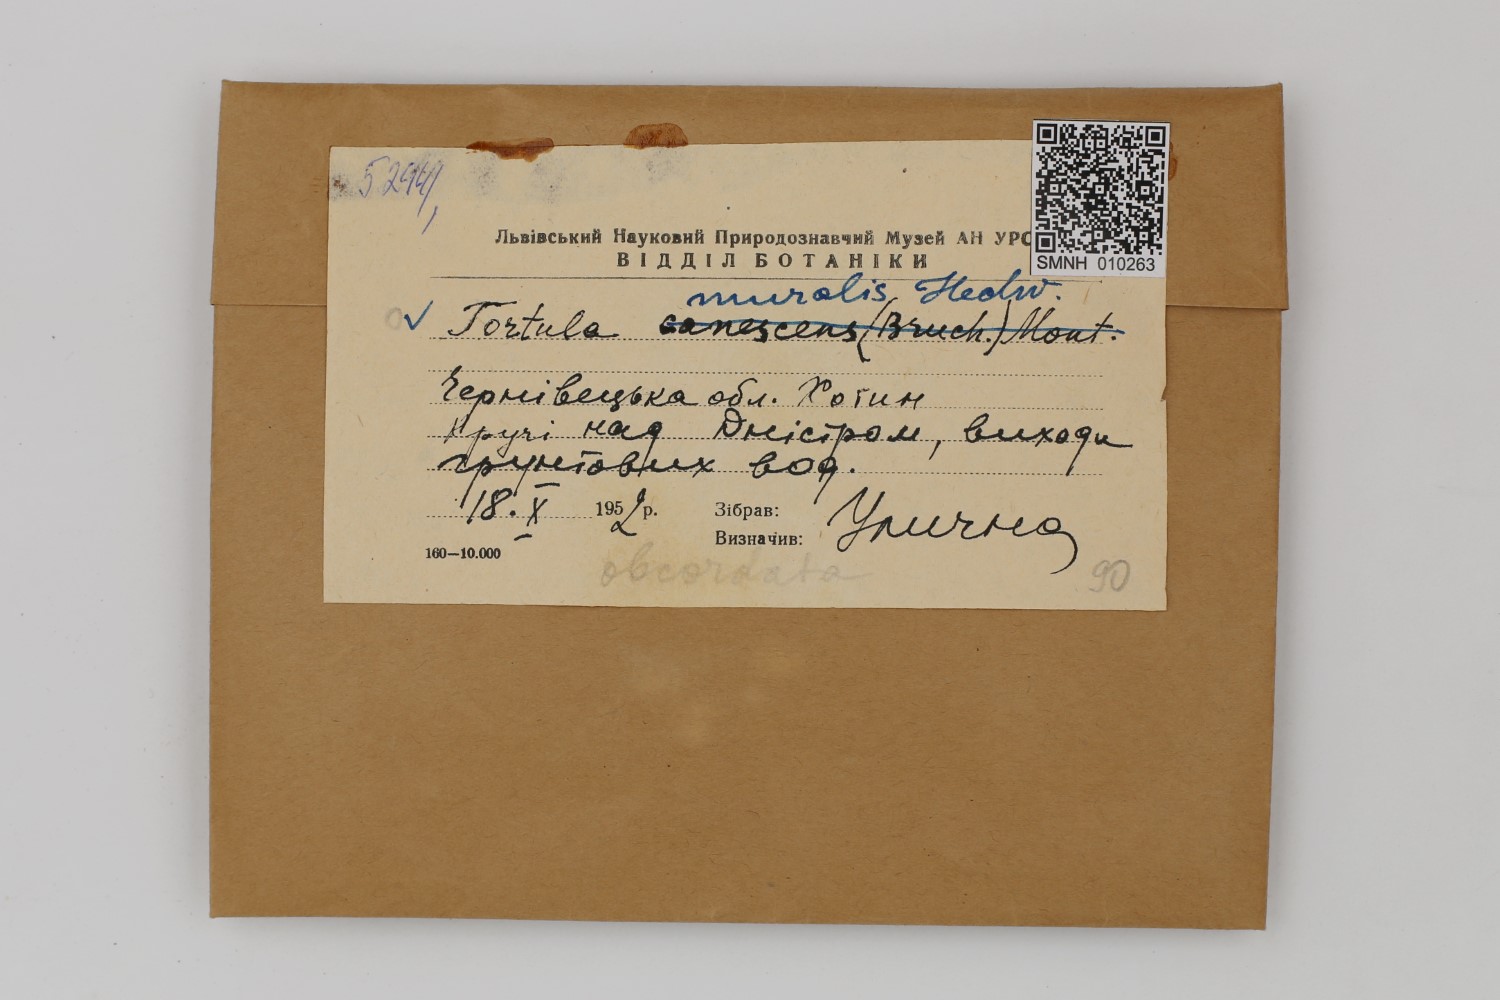 Львівський Науковий Природознавчий Музей АН УРС
ВІДДІЛ БОТАНІКИ
SMNH 010263
muralis Hedw.
Tortula canescens (Bruch.) Mont.
Чернівецька обл. Хотин
Кручі над Дністром, виходи
грунтових вод.
18. X 1952 р.
Зібрав:
Визначив:
Улична
160—10.000
obcordata
90